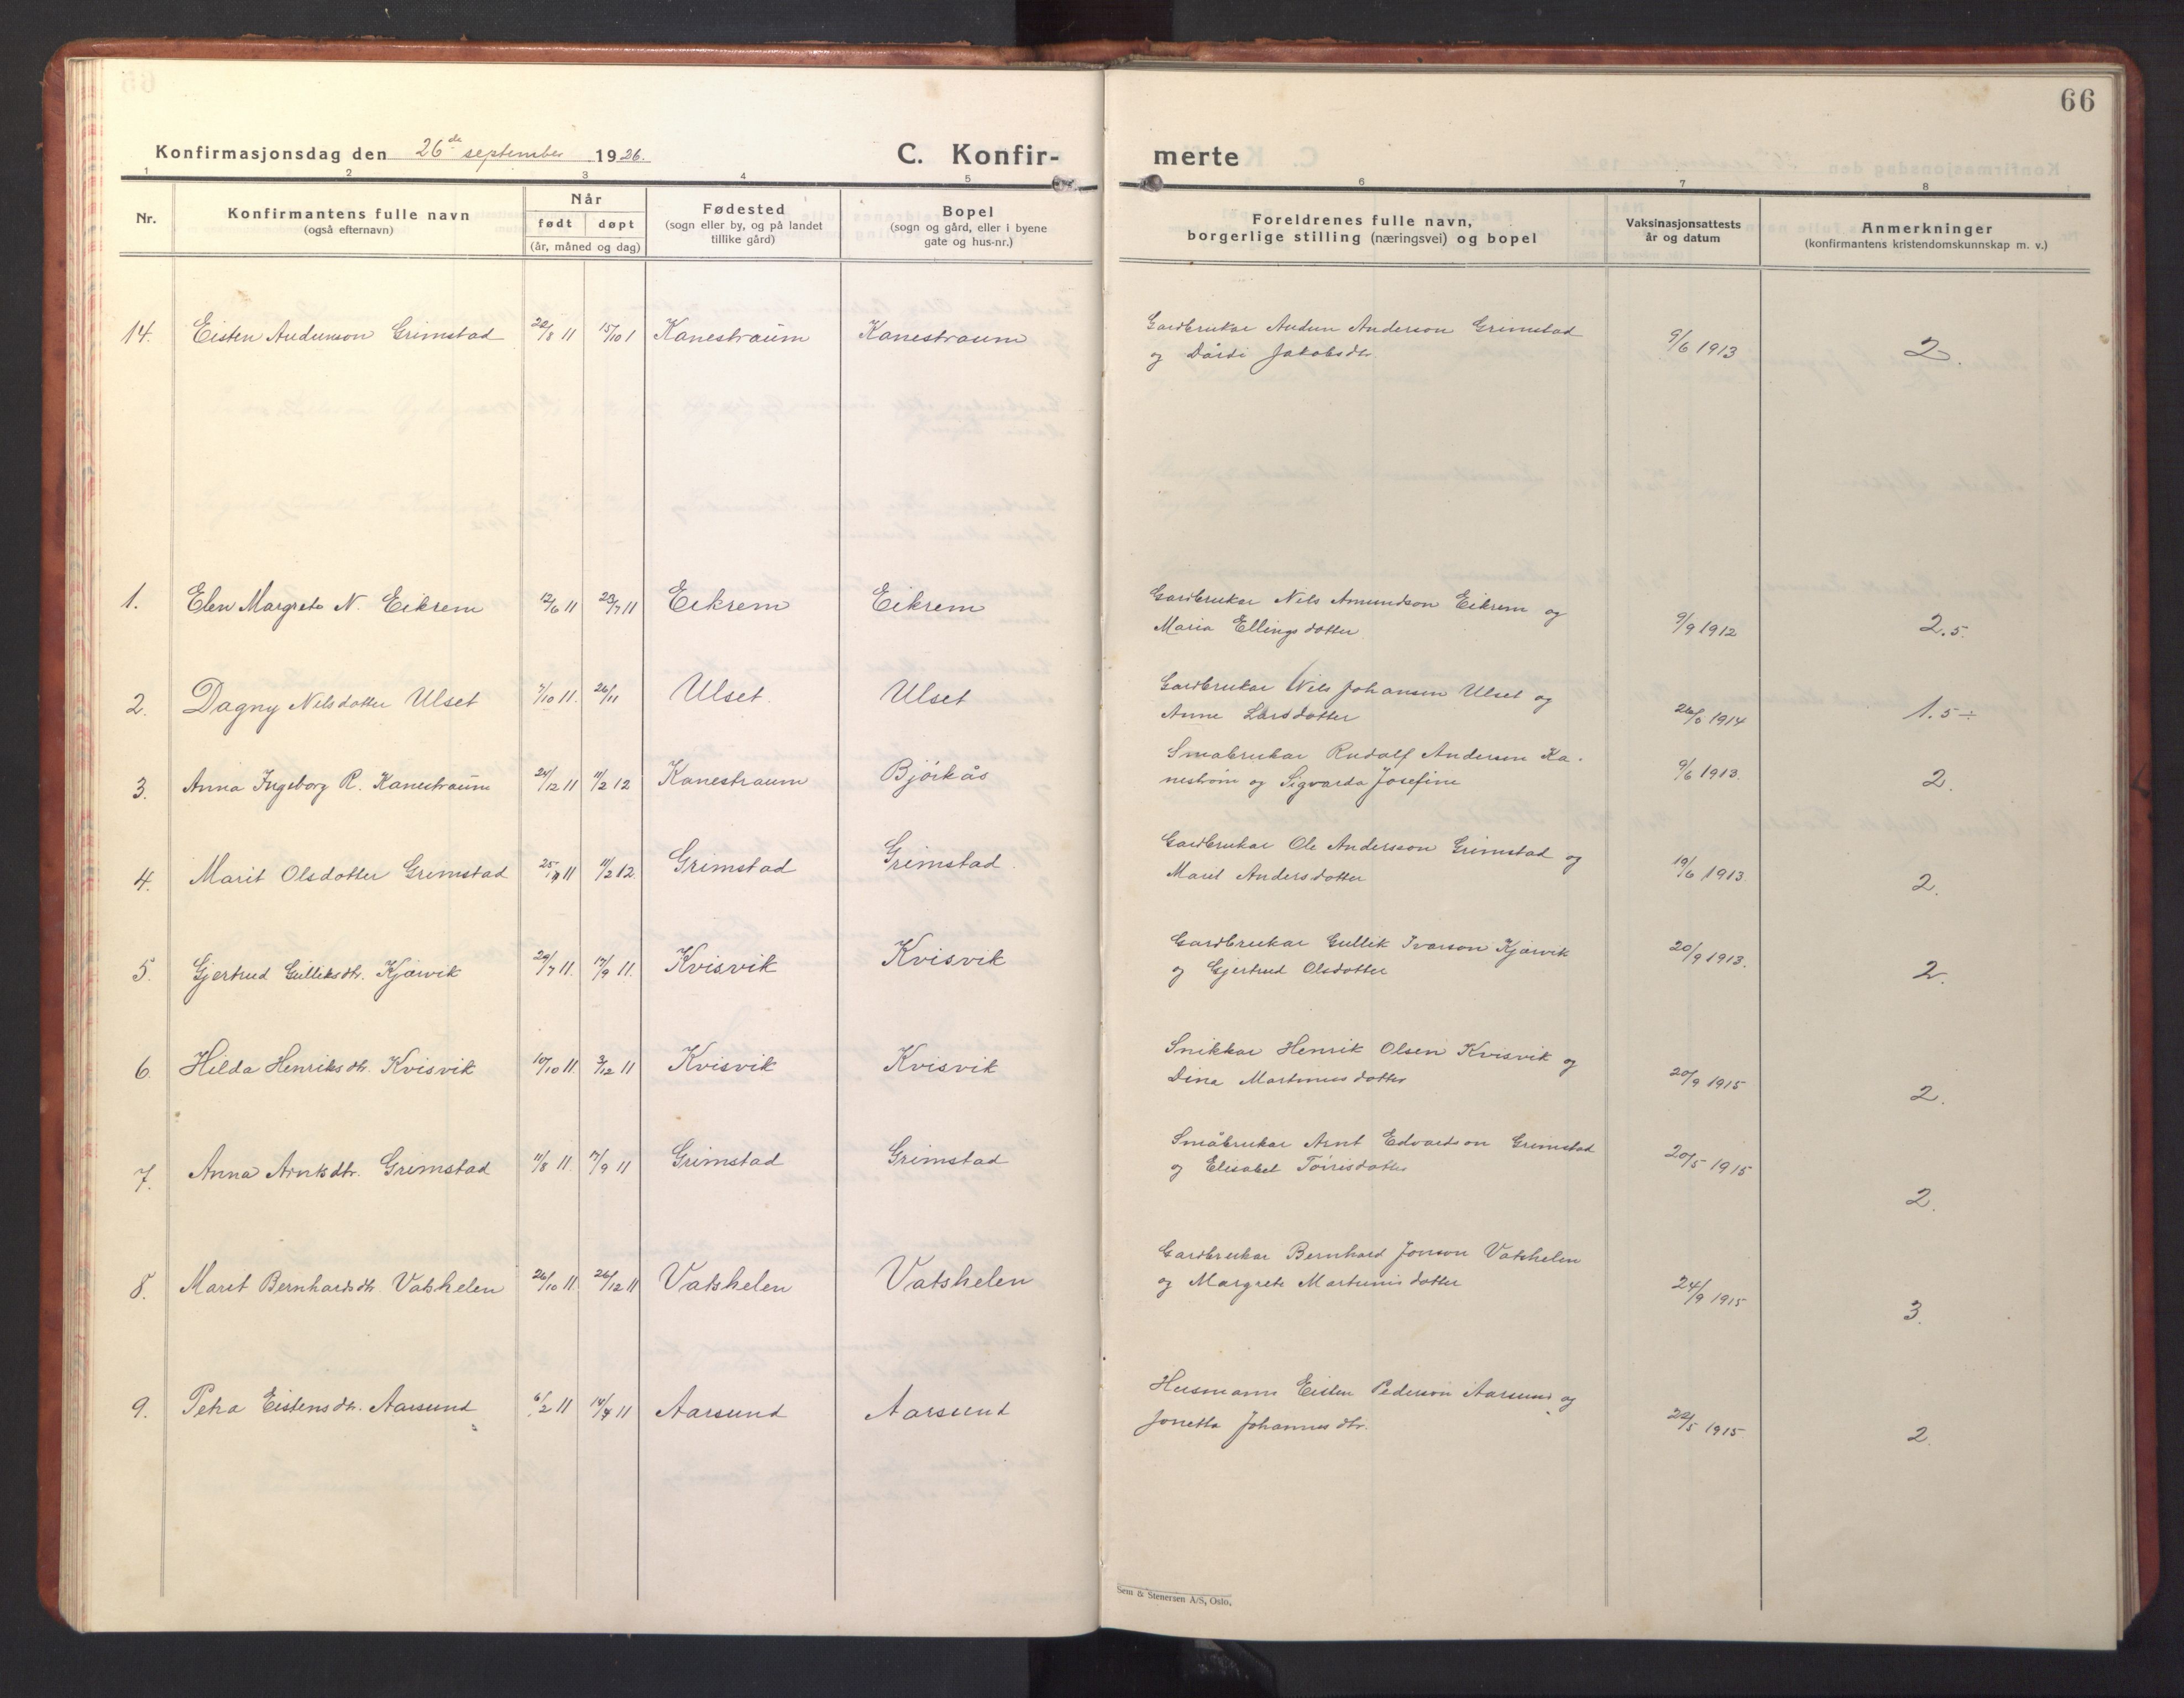 66
Konfirmasjonsdag den 26de september 1926.
C. Konfir-
merte
1 2 3 4 5 6 7 8
Nr.
Konfirmantens fulle navn
(også efternavn)
Når
født døpt
(år, måned og dag)
Fødested
(sogn eller by, og på landet
tillike gård)
Bopel
(sogn og gård, eller i byene
gate og hus-nr.)
Foreldrenes fulle navn,
borgerlige stilling (næringsvei) og bopel
Vaksinasjonsattests
år og datum
Anmerkninger
(konfirmantens kristendomskunnskap m. v.)
14. Eisten Audunson Grimstad 22/8 11 15/10 1 Kanestraum Kanestraum
Gardbrukar Audun Anderson Grimstad
og Dårdi Jakobsdtr. 9/6 1913 2.
1. Elen Margrete N. Eikrem 12/6 11 23/7 11 Eikrem Eikrem
Gardbrukar Nils Amundson Eikrem og
Maria Ellingsdotter 9/9 1912 2.5.
2. Dagny Nilsdotter Ulset 7/10 11. 26/11 Ulset. Ulset
Gardbrukar Nils Johansen Ulset og
Anne Larsdotter 26/6 1914 1.5 ÷
3. Anna Ingeborg R. Kanestraum 24/12 11 11/2 12 Kanestraum Bjørkås
Småbrukar Rudolf Andersen Ka-
nestrøm og Sigvarda Josefine 9/6 1913. 2.
4. Marit Olsdotter Grimstad 25/ 11 11/2 12. Grimstad Grimstad.
Gardbrukar Ole Andersson Grimstad og
Marit Andersdotter 19/6 1913. 2.
5. Gjertrud Gulliksdtr. Kjørvik 29/7 11. 17/9 11. Kvisvik Kvisvik
Gardbrukar Gullik Ivarson Kjørvik
og Gjertrud Olsdotter 20/9 1913. 2.
6. Hilda Henriksdtr. Kvisvik 10/10 11. 3/12 11 Kvisvik Kvisvik
Snikkar Henrik Olsen Kvisvik og
Dina Martinusdotter 20/9 1915 2.
7. Anna Arntsdtr. Grimstad 11/8 11. 17/9 11 Grimstad Grimstad
Småbrukar Arnt Edvardson Grimstad
og Elisabet Tørrisdotter 20/5 1915 2.
8. Marit Bernhardsdtr. Vatshelen 26/10 11. 26/12 11 Vatshelen Vatshelen
Gardbrukar Bernhard Jonson Vatshelen
og Margrete Martinusdotter 24/9 1915 3.
9. Petra Eistensdtr. Aarsund 6/2 11 14/4 11 Aarsund Aarsund
Husmann Eisten Pederson Aarsund og
Jonetta Johannesdtr. 22/5 1915 2.
Sem & Stenersen A/S, Oslo.